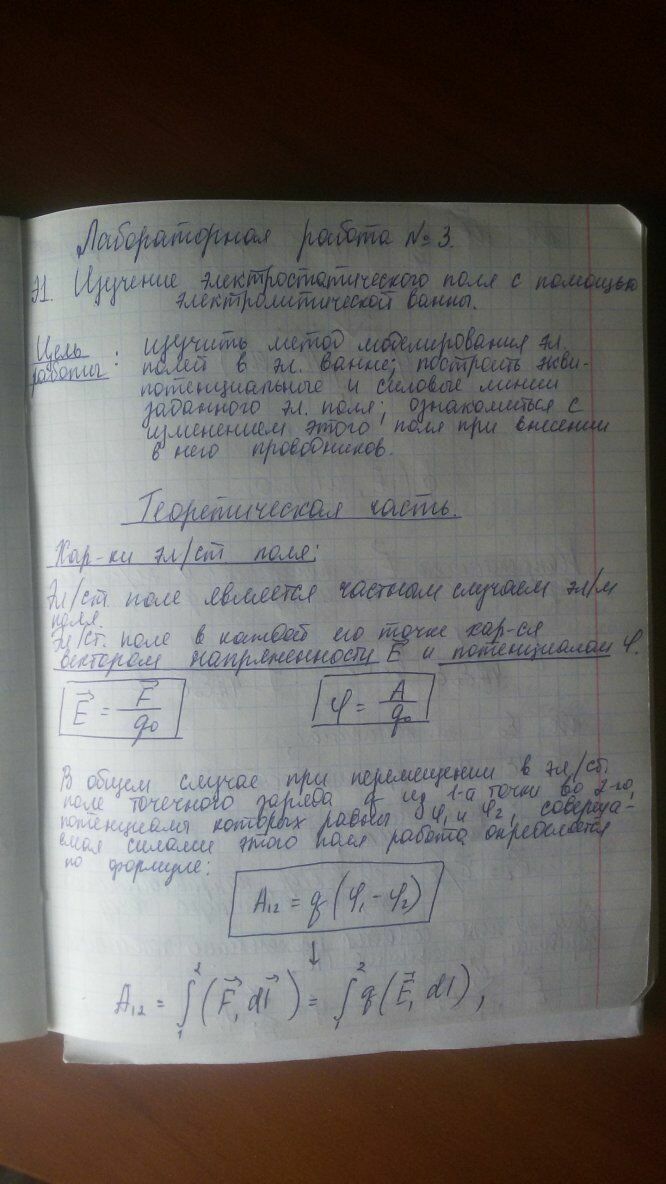 Лабораторная работа № 3.
71. Изучение электростатического поля с помощью
электролитической ванны.
Цель работы: изучить метод моделирования эл.
полей в эл. ванне; построить экви-
потенциальные и силовые линии
заданного эл. поля; ознакомиться с
изменением этого поля при внесении
в него проводников.
Теоретическая часть.
Хар-ки эл/ст. поля:
Эл/ст. поле является частном случаем эл/м
поля.
Эл/ст. поле в каждой его точке хар-ся
вектором напряженности E⃗ и потенциалом φ.
E⃗ = F⃗/q₀ φ = A/q₀
В общем случае при перемещении в эл/ст.
поле точечного заряда q из 1-й точки во 2-го,
потенциалы которых равны φ₁ и φ₂, соверша-
емая силами этого поля работа определяется
по формуле:
A₁₂ = q (φ₁ - φ₂)
↓
A₁₂ = ∫₁² (F⃗, dl⃗) = ∫₁² q (E⃗, dl),